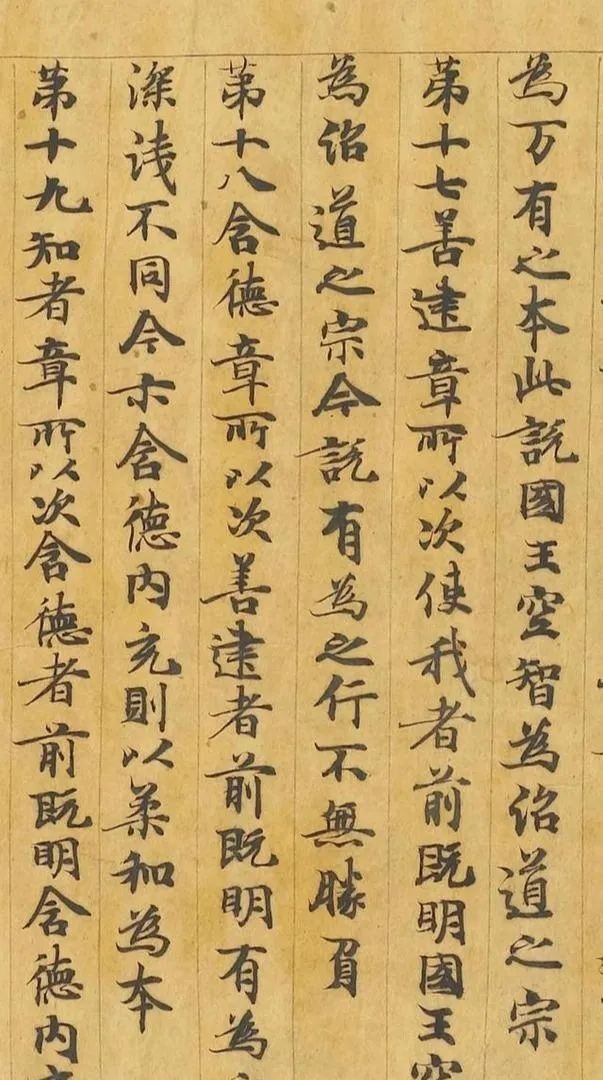 為万有之本此説國王空智為伀道之宗
第十七善建章所以次使我者前既明國王空
為伀道之宗今説有為之行不無勝負
第十八含德章所以次善建者前既明有為
深浅不同今明含德内充則以柔和為本
第十九知者章所以次含德者前既明含德内充